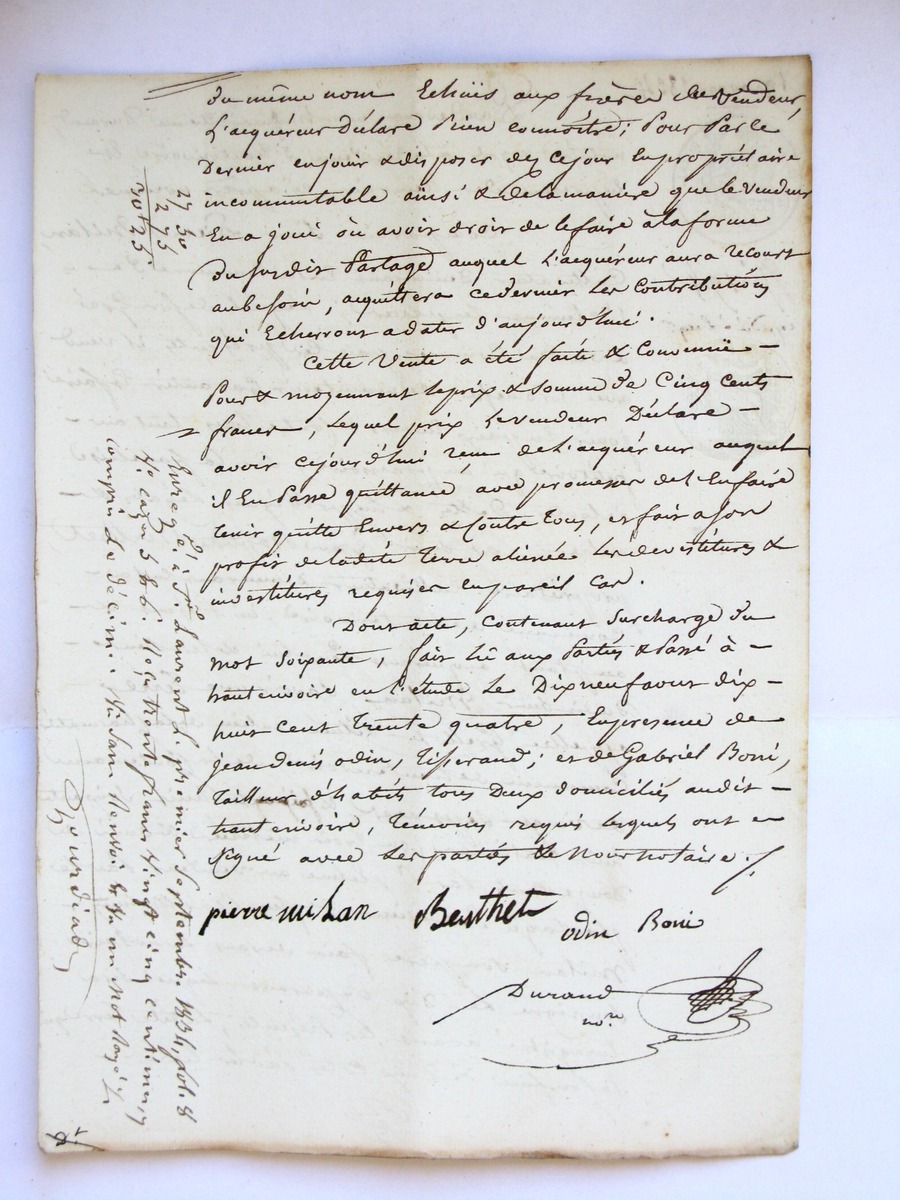 du même nom Echuës aux frères du vendeur,
L'acquéreur Déclare bien connoître; Pour Par ce
Dernier en jouir & disposer des ce jour En propriétaire
incommutable ainsi & de la maniere que le vendeur
En a joui où avoir droit de le faire à la forme
Du susdit Partage auquel L'acquéreur aura recourt
au besoin, acquittera ce dernier Les Contributions
qui Echerront a dater d'aujourd'hui.
Cette Vente a été faite & Convenuë -
Pour & moyennant le prix & somme de Cinq Cents
francs, Lequel prix Le vendeur Déclare -
avoir cejourd'hui reçu de L'acquéreur auquel
il En Passe quittance avec promesse de L'En faire
tenir quitte Envers & Contre Tous, et fait a son
profit de la dite Terre alienée Les devestitures &
investitures requises en pareil cas.
Dont acte, contenant Surcharge du
mot Soixante, fait lû aux Parties & Passé à -
hautenvoire en l'étude Le Dix neuf aout dix -
huit cent Trente quatre, En presence de
jean denis odin, Tisserand; et de Gabriel Boni,
Tailleur d'habits tous Deux domiciliés audit -
hautenvoire, Témoins requis lesquels ont
signé avec Les parties & Nous notaire ./.
pierre milan Berthet
odin Boni
Durand
nore
27 50
2 75
30 25
Enregé à St Laurent le premier septembre 1834, fol. 8
Vo cazes 5 & 6. Reçu trente francs vingt cinq centimes,
compris le décime. Ni sans renvoi & un mot rayé